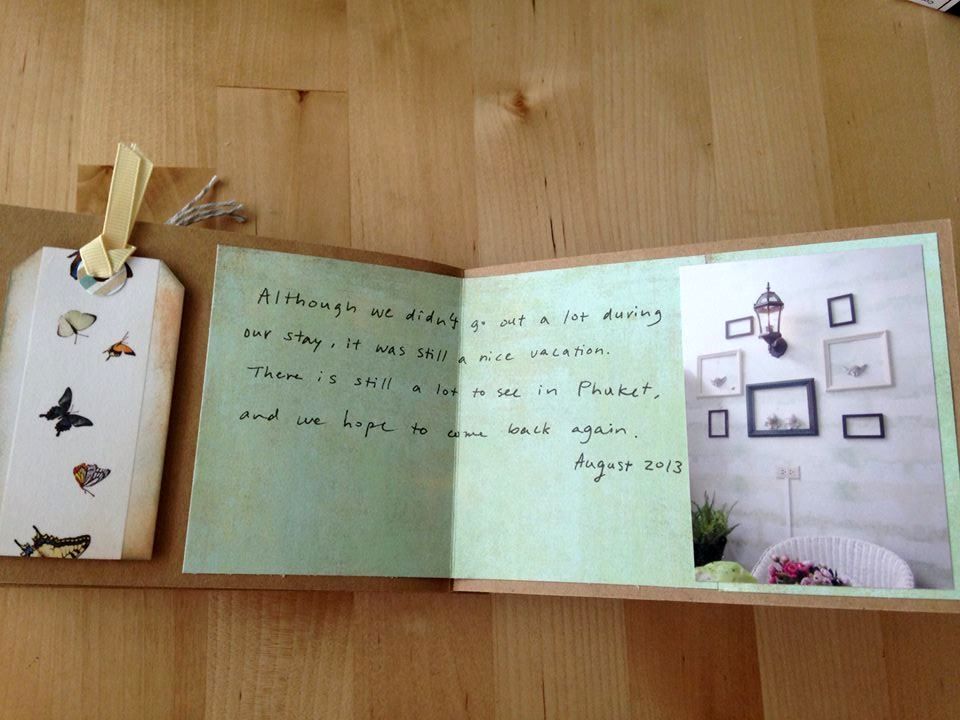 Although we didn't go out a lot during
our stay, it was still a nice vacation.
There is still a lot to see in Phuket,
and we hope to come back again.
August 2013